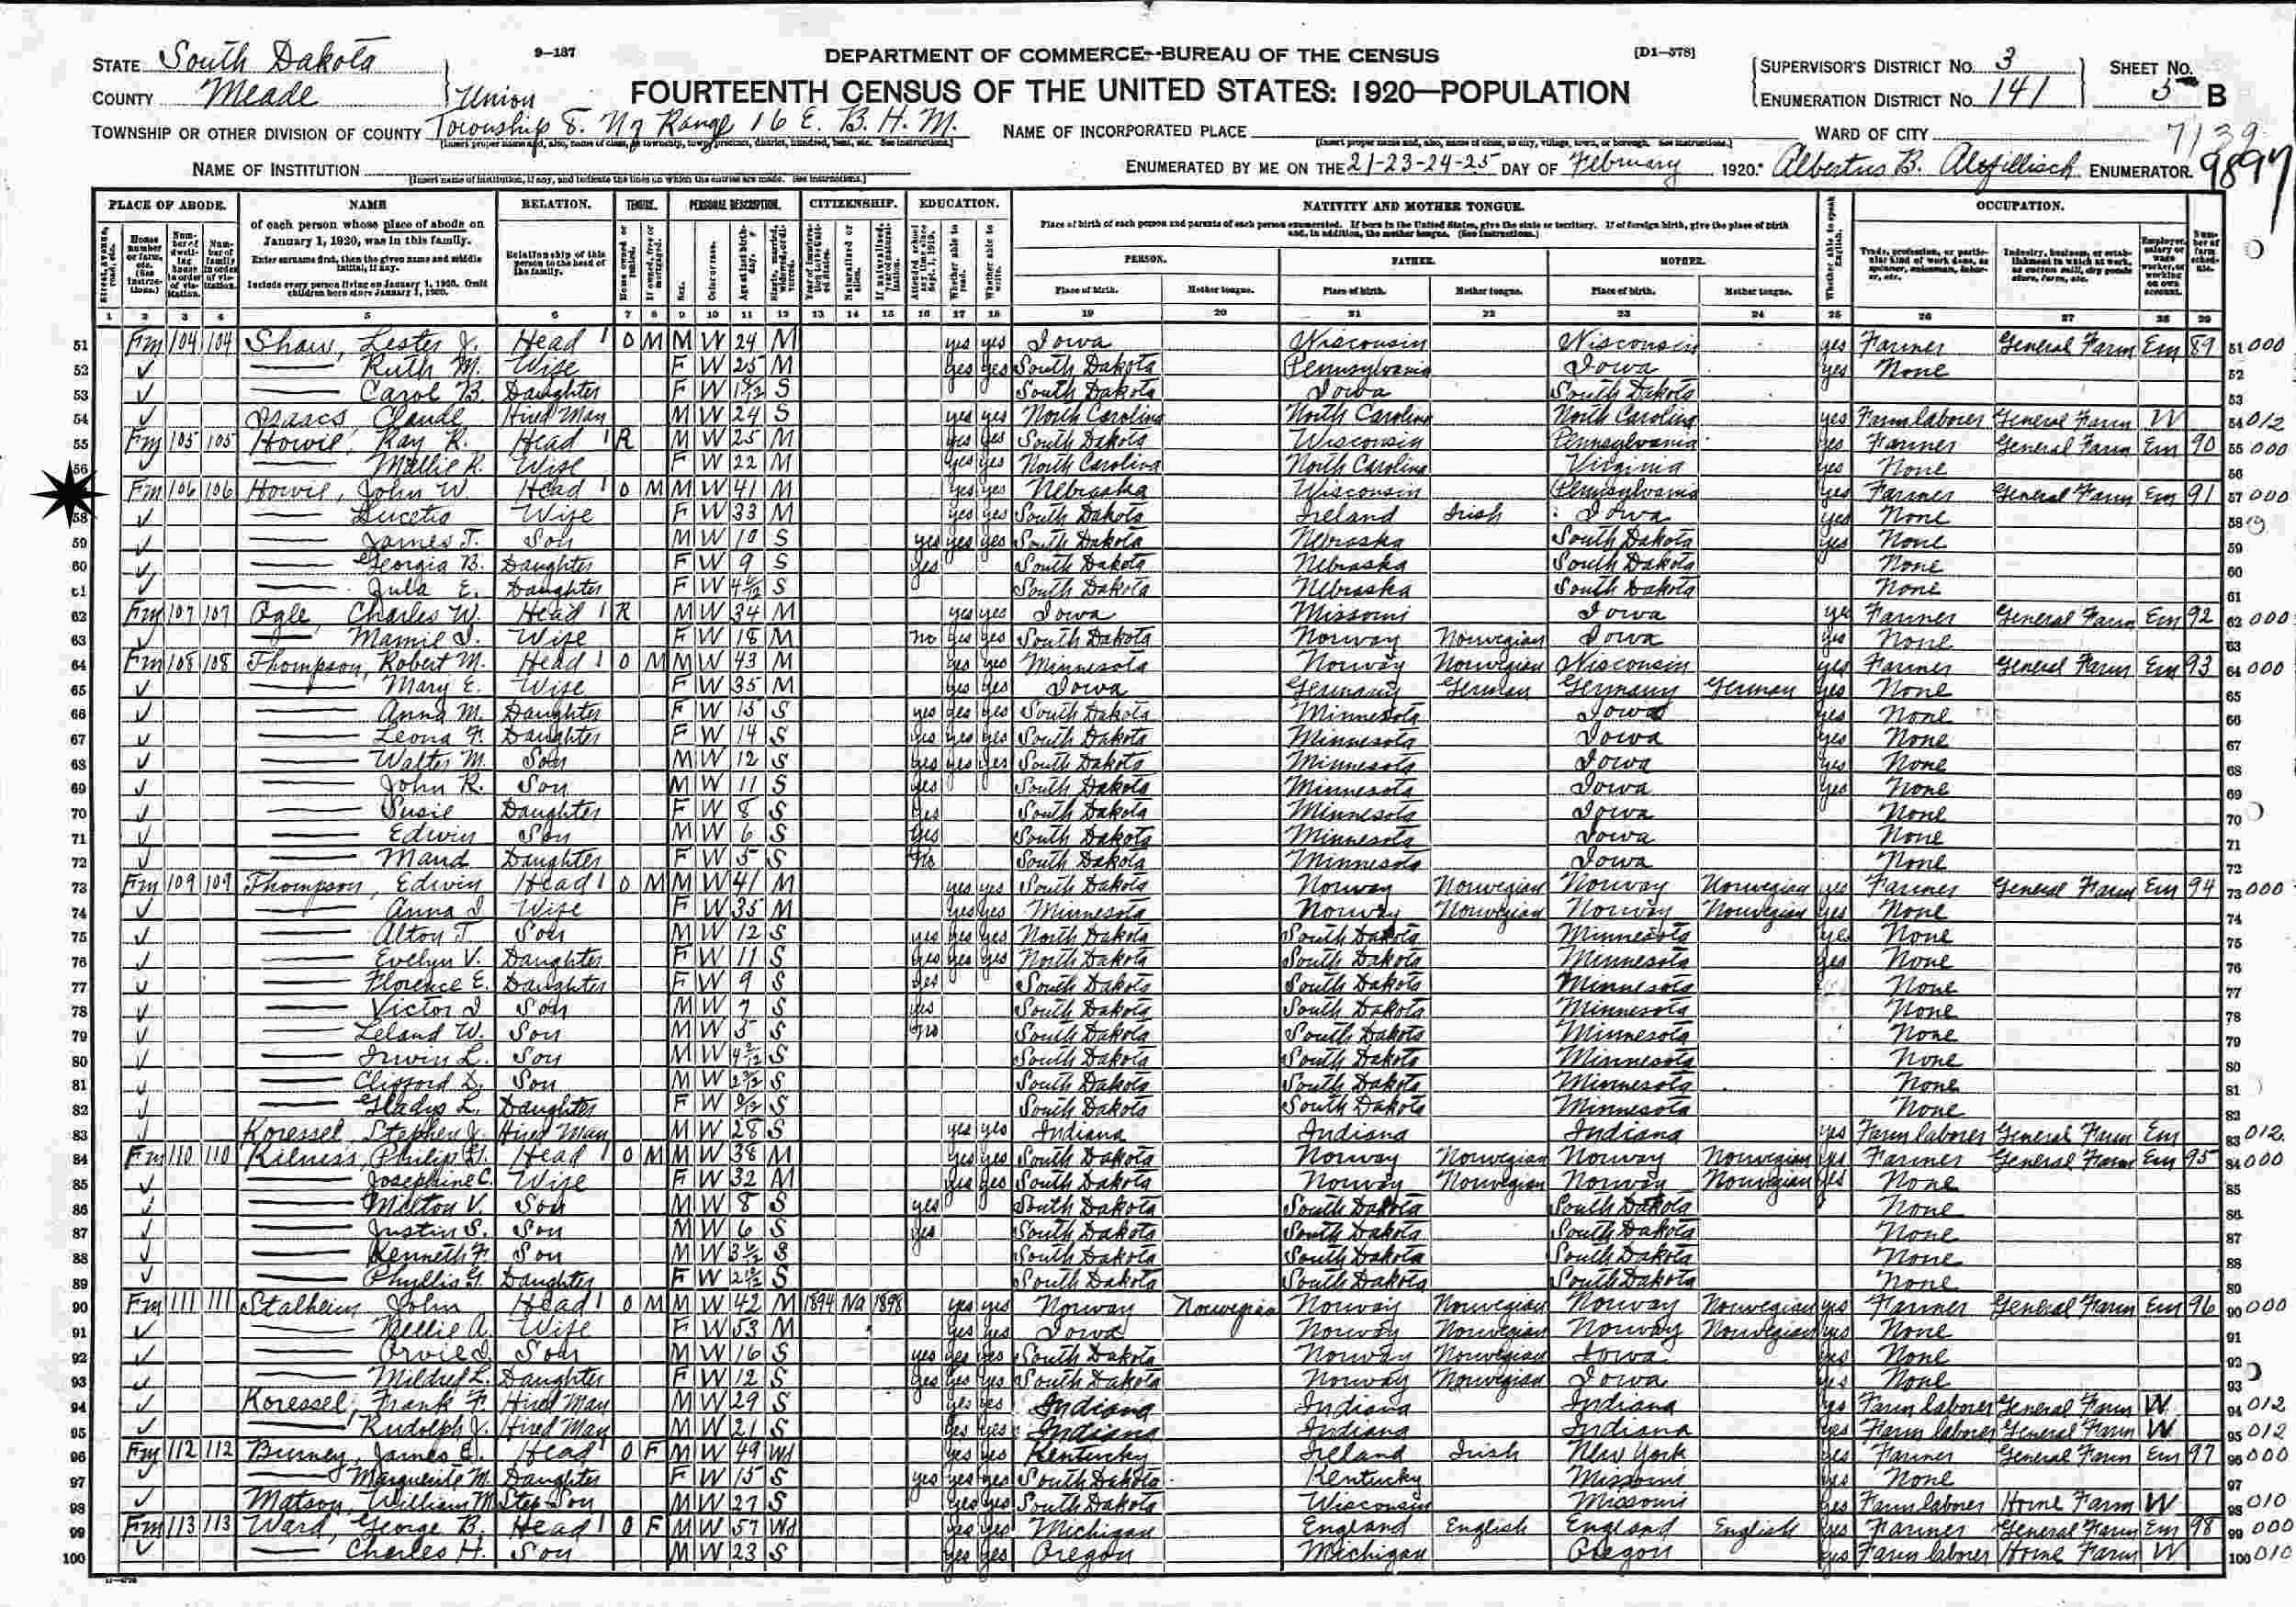 9—137
DEPARTMENT OF COMMERCE--BUREAU OF THE CENSUS
[D1—578]
STATE South Dakota
COUNTY Meade
FOURTEENTH CENSUS OF THE UNITED STATES: 1920—POPULATION
SUPERVISOR'S DISTRICT No. 3
ENUMERATION DISTRICT No. 141
SHEET No. 5 B
Union
TOWNSHIP OR OTHER DIVISION OF COUNTY Township 8. N of Range 16 E. B. H. M.
NAME OF INCORPORATED PLACE
WARD OF CITY
7139
NAME OF INSTITUTION
ENUMERATED BY ME ON THE 21-23-24-25 DAY OF February 1920. Albertus B. ENUMERATOR.
9897
PLACE OF ABODE. NAME RELATION. TENURE. PERSONAL DESCRIPTION. CITIZENSHIP. EDUCATION. NATIVITY AND MOTHER TONGUE. OCCUPATION.
of each person whose place of abode on January 1, 1920, was in this family.
Enter surname first, then the given name and middle initial, if any.
Include every person living on January 1, 1920. Omit children born since January 1, 1920.
Relationship of this person to the head of the family.
Place of birth of each person and parents of each person enumerated. If born in the United States, give the state or territory. If of foreign birth, give the place of birth and, in addition, the mother tongue. (See Instructions.)
PERSON. FATHER. MOTHER.
Place of birth. Mother tongue. Place of birth. Mother tongue. Place of birth. Mother tongue.
Whether able to speak English.
1 2 3 4 5 6 7 8 9 10 11 12 13 14 15 16 17 18 19 20 21 22 23 24 25 26 27 28 29
51 Fm 104 104 Shaw, Lester J. Head 1 O M M W 24 M yes yes Iowa Wisconsin Wisconsin yes Farmer General Farm Em 89 51 000
52 Ruth M. Wife F W 25 M yes yes South Dakota Pennsylvania Iowa yes None 52
53 Carol B. Daughter F W S South Dakota Iowa South Dakota 53
54 Isaacs, Claude Hired Man M W 24 S yes yes North Carolina North Carolina North Carolina yes Farm laborer General Farm W 54 012
55 Fm 105 105 Howie, Ray R. Head 1 R M W 25 M yes yes South Dakota Wisconsin Pennsylvania yes Farmer General Farm Em 90 55 000
56 Millie R. Wife F W 22 M yes yes North Carolina North Carolina Virginia yes None 56
Fm 106 106 Howie, John W. Head 1 O M M W 41 M yes yes Nebraska Wisconsin Pennsylvania yes Farmer General Farm Em 91 57 000
58 Lucetia Wife F W 33 M yes yes South Dakota Ireland Irish Iowa yes None 58
59 James T. Son M W 10 S yes yes yes South Dakota Nebraska South Dakota yes None 59
60 Georgia B. Daughter F W 9 S yes South Dakota Nebraska South Dakota None 60
61 Jula E. Daughter F W S South Dakota Nebraska South Dakota None 61
62 Fm 107 107 Ogle, Charles W. Head 1 R M W 34 M yes yes Iowa Missouri Iowa yes Farmer General Farm Em 92 62 000
63 Mamie I. Wife F W 18 M no yes yes South Dakota Norway Norwegian Iowa yes None 63
64 Fm 108 108 Thompson, Robert M. Head 1 O M M W 43 M yes yes Minnesota Norway Norwegian Wisconsin yes Farmer General Farm Em 93 64 000
65 Mary E. Wife F W 35 M yes yes Iowa Germany German Germany German yes None 65
66 Anna M. Daughter F W 15 S yes yes yes South Dakota Minnesota Iowa yes None 66
67 Leona F. Daughter F W 14 S yes yes yes South Dakota Minnesota Iowa yes None 67
68 Walter M. Son M W 12 S yes yes yes South Dakota Minnesota Iowa yes None 68
69 John R. Son M W 11 S yes South Dakota Minnesota Iowa yes None 69
70 Susie Daughter F W 8 S yes South Dakota Minnesota Iowa None 70
71 Edwin Son M W 6 S yes South Dakota Minnesota Iowa None 71
72 Maud Daughter F W 5 S no South Dakota Minnesota Iowa None 72
73 Fm 109 109 Thompson, Edwin Head 1 O M M W 41 M yes yes South Dakota Norway Norwegian Norway Norwegian yes Farmer General Farm Em 94 73 000
74 Anna I Wife F W 35 M yes yes Minnesota Norway Norwegian Norway Norwegian yes None 74
75 Alton T. Son M W 12 S yes yes yes North Dakota South Dakota Minnesota yes None 75
76 Evelyn V. Daughter F W 11 S yes yes yes North Dakota South Dakota Minnesota yes None 76
77 Florence E. Daughter F W 9 S yes South Dakota South Dakota Minnesota None 77
78 Victor I Son M W 7 S yes South Dakota South Dakota Minnesota None 78
79 Leland W. Son M W 5 S no South Dakota South Dakota Minnesota None 79
80 Irwin L. Son M W S South Dakota South Dakota Minnesota None 80
81 Clifford D. Son M W S South Dakota South Dakota Minnesota None 81
82 Gladys L. Daughter F W S South Dakota South Dakota Minnesota None 82
83 Koressel, Stephen J. Hired Man M W 28 S yes yes Indiana Indiana Indiana yes Farm laborer General Farm Em 83 012
84 Fm 110 110 Kilness, Philip H. Head 1 O M M W 38 M yes yes South Dakota Norway Norwegian Norway Norwegian yes Farmer General Farm Em 95 84 000
85 Josephine C. Wife F W 32 M yes yes South Dakota Norway Norwegian Norway Norwegian yes None 85
86 Milton V. Son M W 8 S yes South Dakota South Dakota South Dakota None 86
87 Justin S. Son M W 6 S yes South Dakota South Dakota South Dakota None 87
88 Kenneth F. Son M W S South Dakota South Dakota South Dakota None 88
89 Phyllis G. Daughter F W S South Dakota South Dakota South Dakota None 89
90 Fm 111 111 Stalheim, John Head 1 O M M W 42 M 1894 Na 1898 yes yes Norway Norwegian Norway Norwegian Norway Norwegian yes Farmer General Farm Em 96 90 000
91 Nellie A. Wife F W 53 M yes yes Iowa Norway Norwegian Norway Norwegian yes None 91
92 Orvie I. Son M W 16 S yes yes yes South Dakota Norway Norwegian Iowa yes None 92
93 Mildred L. Daughter F W 12 S yes yes yes South Dakota Norway Norwegian Iowa yes None 93
94 Koressel, Frank F. Hired Man M W 29 S yes yes Indiana Indiana Indiana yes Farm laborer General Farm W 94 012
95 Rudolph J. Hired Man M W 21 S yes yes Indiana Indiana Indiana yes Farm laborer General Farm W 95 012
96 Fm 112 112 Burney, James E. Head 1 O F M W 49 Wd yes yes Kentucky Ireland Irish New York yes Farmer General Farm Em 97 96 000
97 Marguerite M. Daughter F W 15 S yes yes yes South Dakota Kentucky Missouri yes None 97
98 Matson, William M. Step-Son M W 27 S yes yes South Dakota Wisconsin Missouri yes Farm laborer Home Farm W 98 010
99 Fm 113 113 Ward, George B. Head 1 O F M W 57 Wd yes yes Michigan England English England English yes Farmer General Farm Em 98 99 000
100 Charles H. Son M W 23 S yes yes Oregon Michigan Oregon yes Farm laborer Home Farm W 100 010